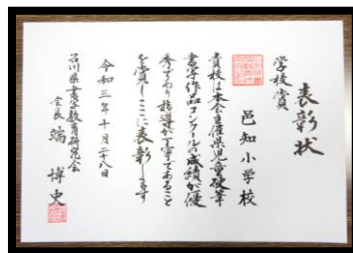 表彰状
学校賞
邑知小学校
貴校は本会主催県児童硬筆
書写作品コンクールの成績が優
秀であり指導が丁寧であること
を賞しここに表彰します
令和三年十月二十八日
石川県書写教育研究会
会長 端 博史